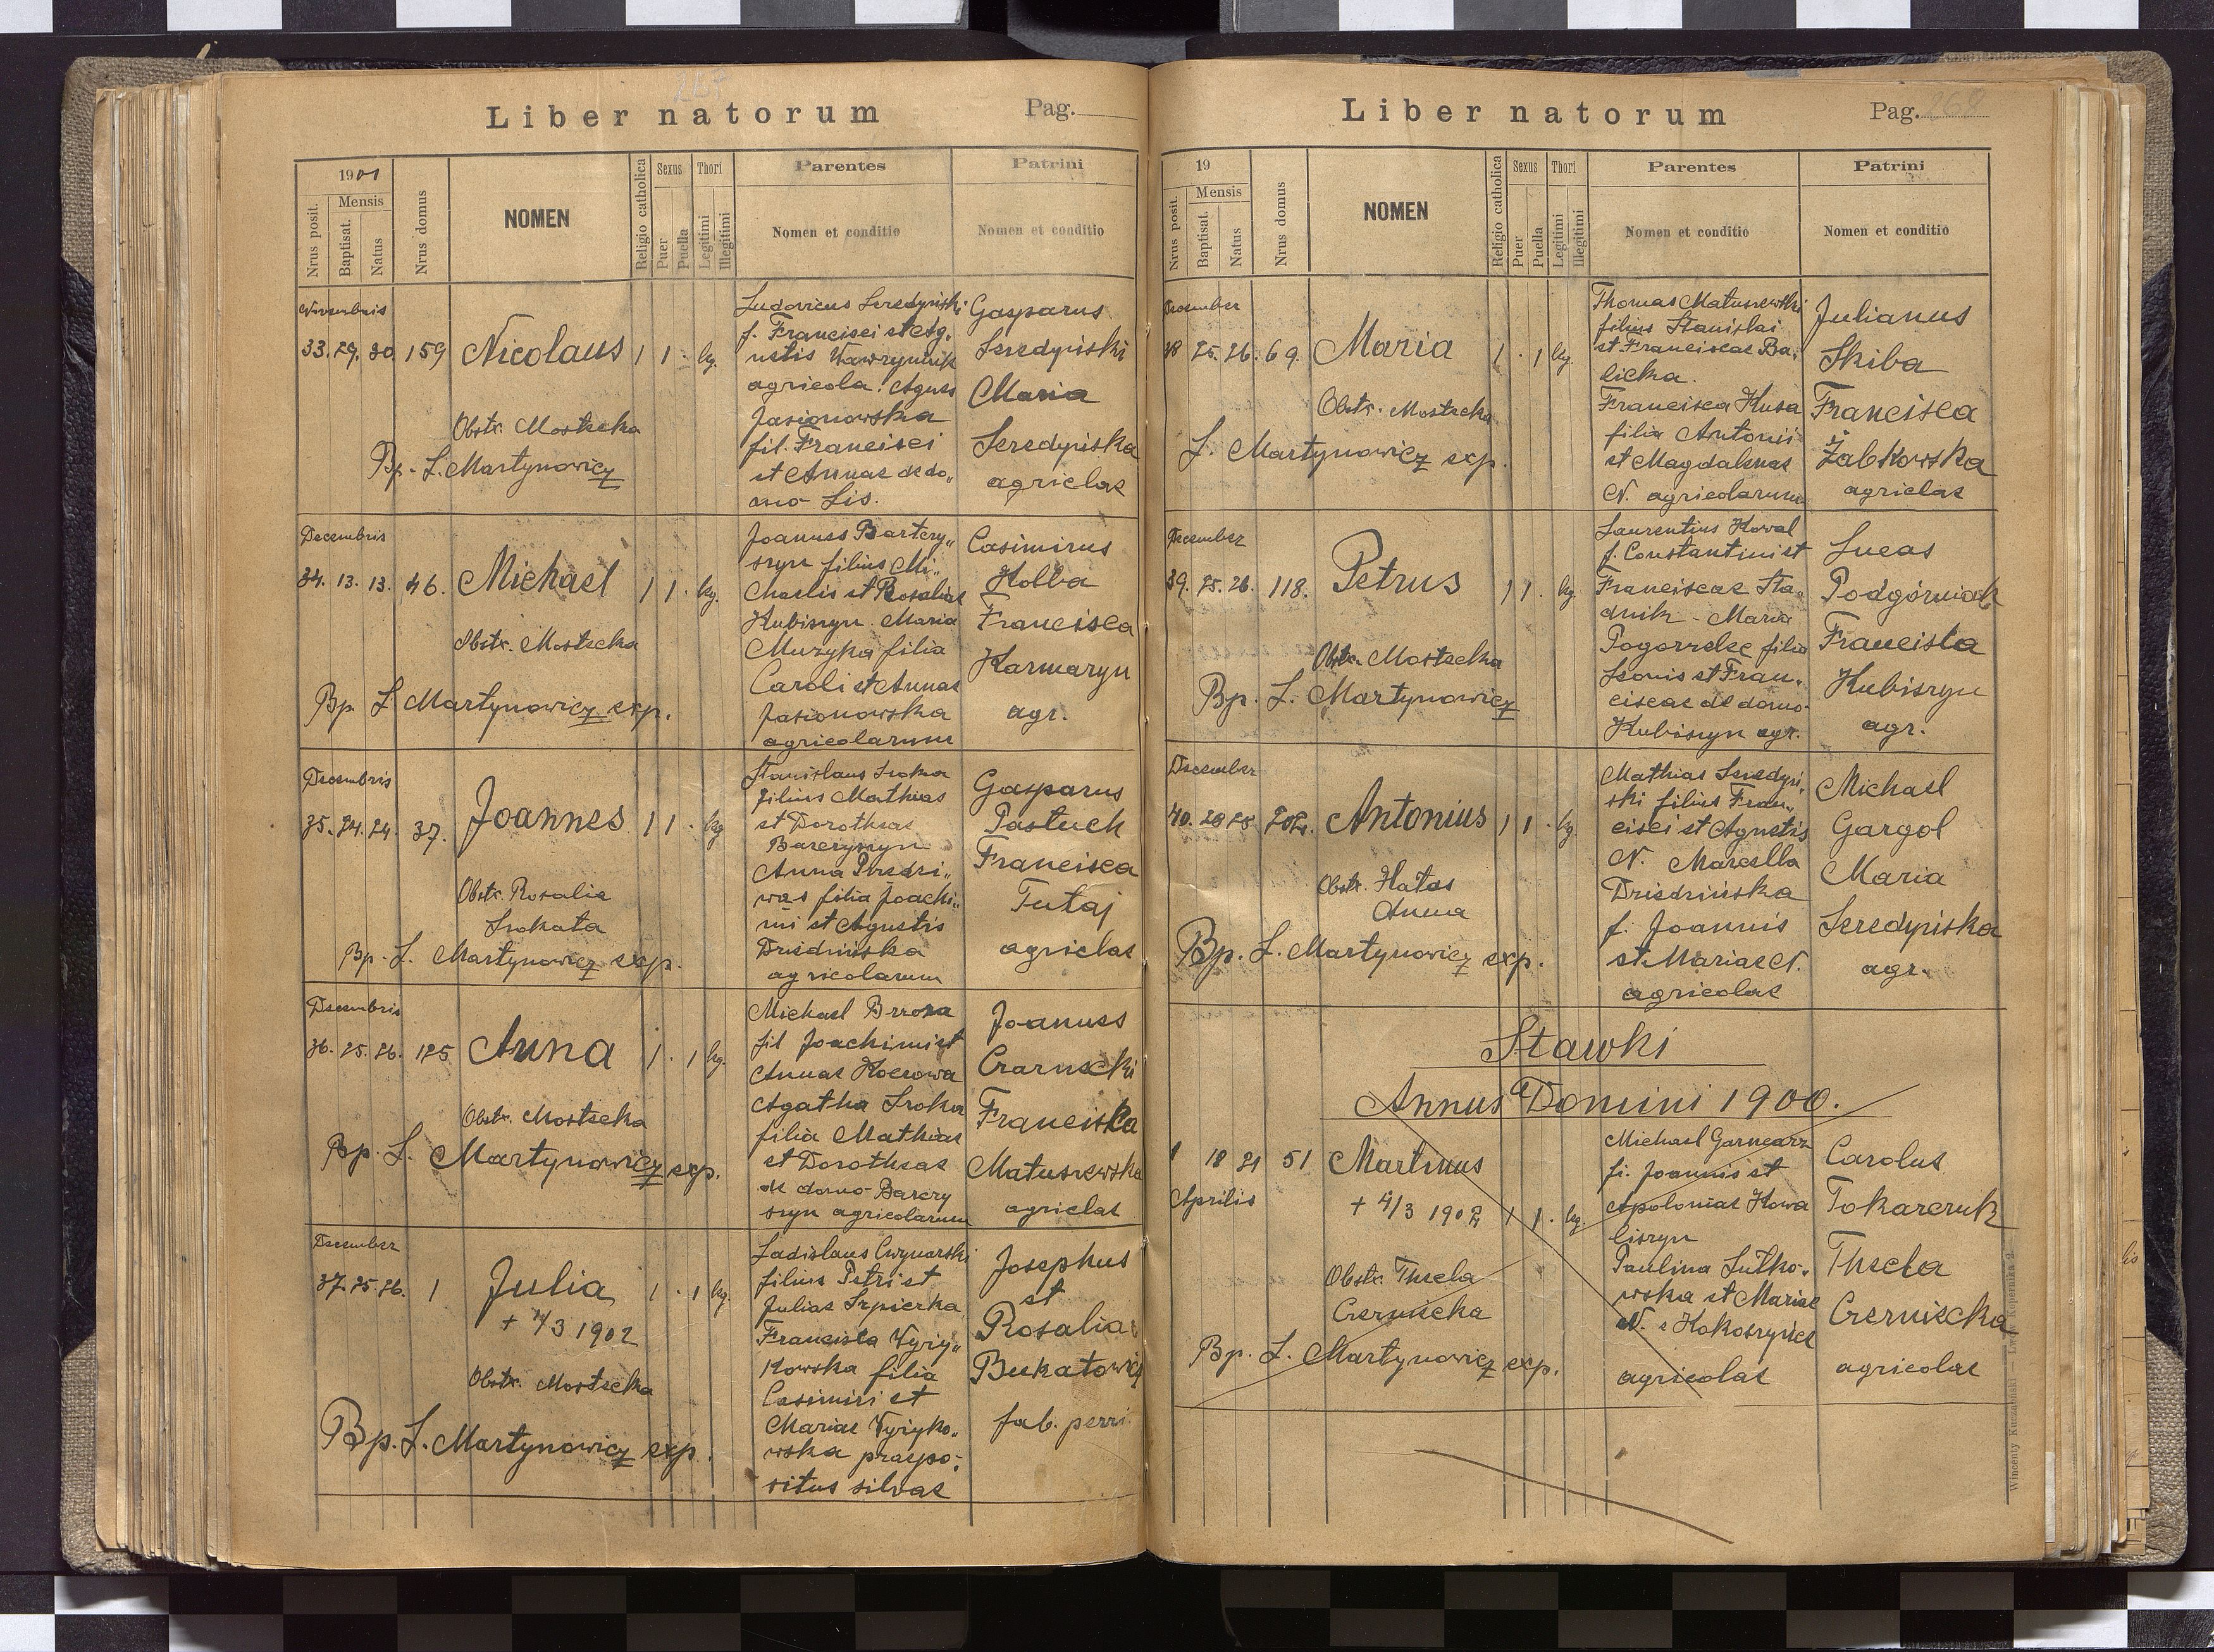 Liber natorum Pag.
1901
Nrus posit.
Mensis
Baptisat.
Natus
Nrus domus
NOMEN
Religio catholica
Sexus
Puer
Puella
Thori
Legitimi
Illegitimi
Parentes
Nomen et conditio
Patrini
Nomen et conditio
Novembris
33. 29. 30 159 Nicolaus 1 1 · lg.
Obstr. Mostecka
Bp. L. Martynowicz
Ludovicus Seredyński
f. Francisci et Ag„
netis Wawryniuk
agricola. Agnes
Jasionowska
fil. Francisci
et Annae de do„
mo Lis.
Gasparus
Seredyński
Maria
Seredyńska
agricolae
Decembris
34. 13. 13. 46. Michael 1 1 · lg.
Obstr. Mostecka
Bp L Martynowicz exp.
Joannes Barczy„
szyn filius Mi„
chaelis et Rosaliae
Kubiszyn. Maria
Muzyka filia
Caroli et Annae
Jasionowska
agricolarum
Casimirus
Kolba
Francisca
Karmazyn
agr.
Decembris
35. 24. 24. 37. Joannes 1 1 · lg
Obstr. Rosalia
Srokata
Bp. L. Martynowicz exp.
Stanislaus Sroka
filius Mathias
et Dorotheae
Barczyszyn
Anna
was filia Joachi„
mi et Agnetis
Dziedzińska
agricolarum
Gasparus
Pastuch
Francisca
Tutaj
agricolae
Decembris
36. 25. 26. 125 Anna 1 · 1 lg.
Obstr. Mostecka
Bp. L. Martynowicz exp.
Michael Brzoza
fil Joachimi et
Annae
Agatha Sroka
filia Mathiae
et Dorotheae
de domo Barczy
szyn agricolarum
Joannes
Czarnecki
Franciska
Matuszewska
agricolae
December
37. 25. 26. 1 Julia 1 · 1 lg.
+ 4/3 1902
Obstr. Mostecka
Bp. L. Martynowicz exp.
Ladislaus Cwynarski
filius Petri et
Juliae Szpierka
Francisca Wyży„
kowska filia
Casimiri et
Mariae Wyżyko„
wska praepo„
situs silvae
Josephus
et
Rosalia
Bukatowicz
fab. ferri
Liber natorum Pag. 268
19
Nrus posit.
Mensis
Baptisat.
Natus
Nrus domus
NOMEN
Religio catholica
Sexus
Puer
Puella
Thori
Legitimi
Illegitimi
Parentes
Nomen et conditio
Patrini
Nomen et conditio
December
38 25. 26. 69. Maria 1 · 1 lg.
Obstr. Mostecka
L. Martynowicz exp.
Thomas Matuszewski
filius Stanislai
et Franciscae Ba„
licka.
Francisca Kusa
filia Antonii
et Magdalenae
N. agricolarum
Julianus
Skiba
Francisca
Żabkowska
agricolae
December
39. 25. 26. 118. Petrus 1 1 · lg.
Obstr. Mostecka
Bp. L. Martynowicz
Laurentius Kowal
f. Constantini et
Franciscae Sta„
dnik - Maria
Pogorzelec filia
Leonis et Fran„
ciscae de domo
Kubiszyn agr.
Lucas
Podgórniak
Franciska
Kubiszyn
agr.
December
40. 28 28 202. Antonius 1 1 · lg.
Obstr. Hatas
Anna
Bp. L. Martynowicz exp.
Mathias Seredyń„
ski filius Fran„
cisci et Agnetis
N. Marcella
Dziedzińska
f. Joannis
et Mariae N.
agricolae
Michael
Gargol
Maria
Seredyńska
agr.
Stawki
Annus Domini 1900.
1 18 21 51 Martinus
Aprilis + 4/3 1902 1 1 · lg.
Obstr. Thecla
Czerniecka
Bp. L. Martynowicz exp.
Michael Garncarz
fi. Joannis et
Apoloniae Kowa
liszyn
Paulina Sutko„
wska et Mariae
N. Kokoszyńce
agricolae
Carolus
Tokarczuk
Thecla
Czerniecka
agricolae